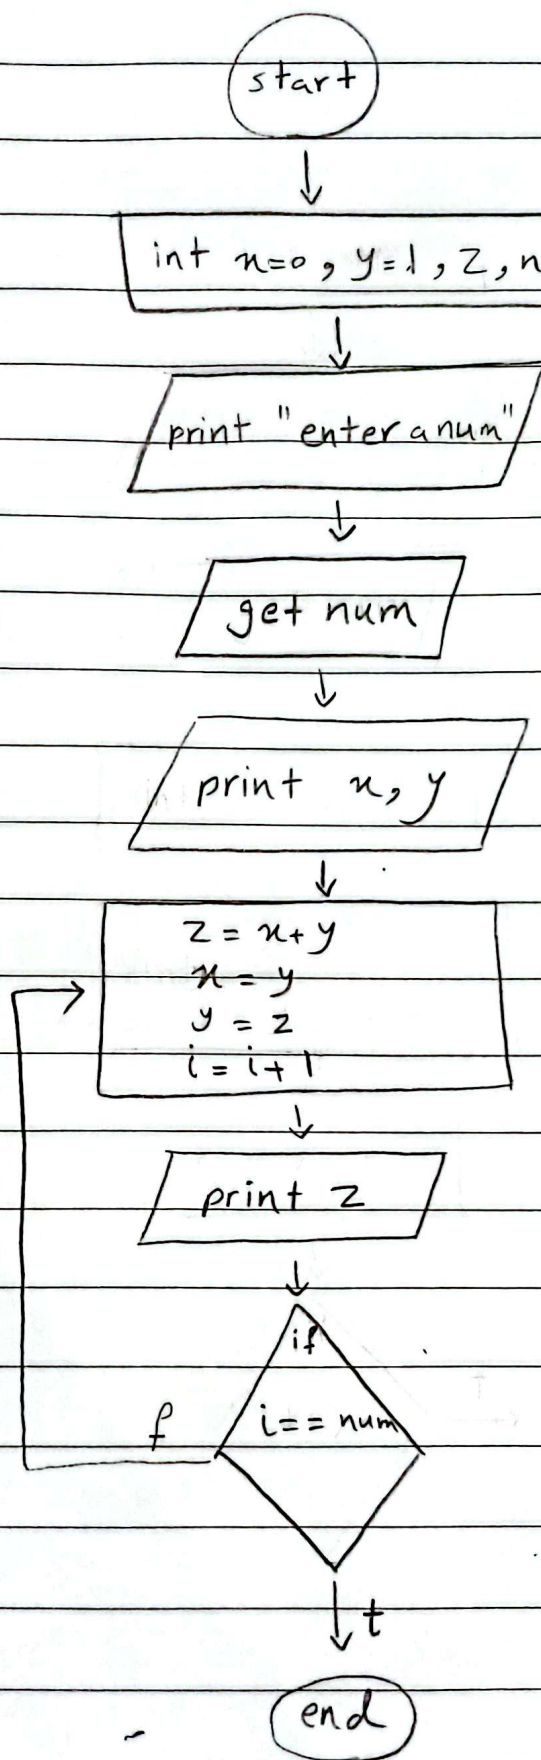 start
int x=0, y=1, z, n
print "enter a num"
get num
print x, y
z = x+y
x = y
y = z
i = i+1
print z
if
i == num
f
t
end